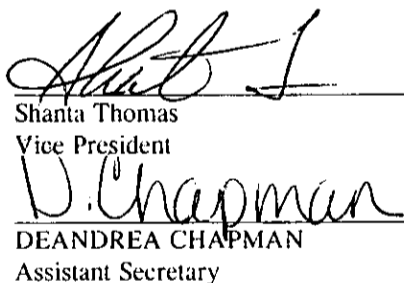 Shanta Thomas
Vice President
D. Chapman
DEANDREA CHAPMAN
Assistant Secretary